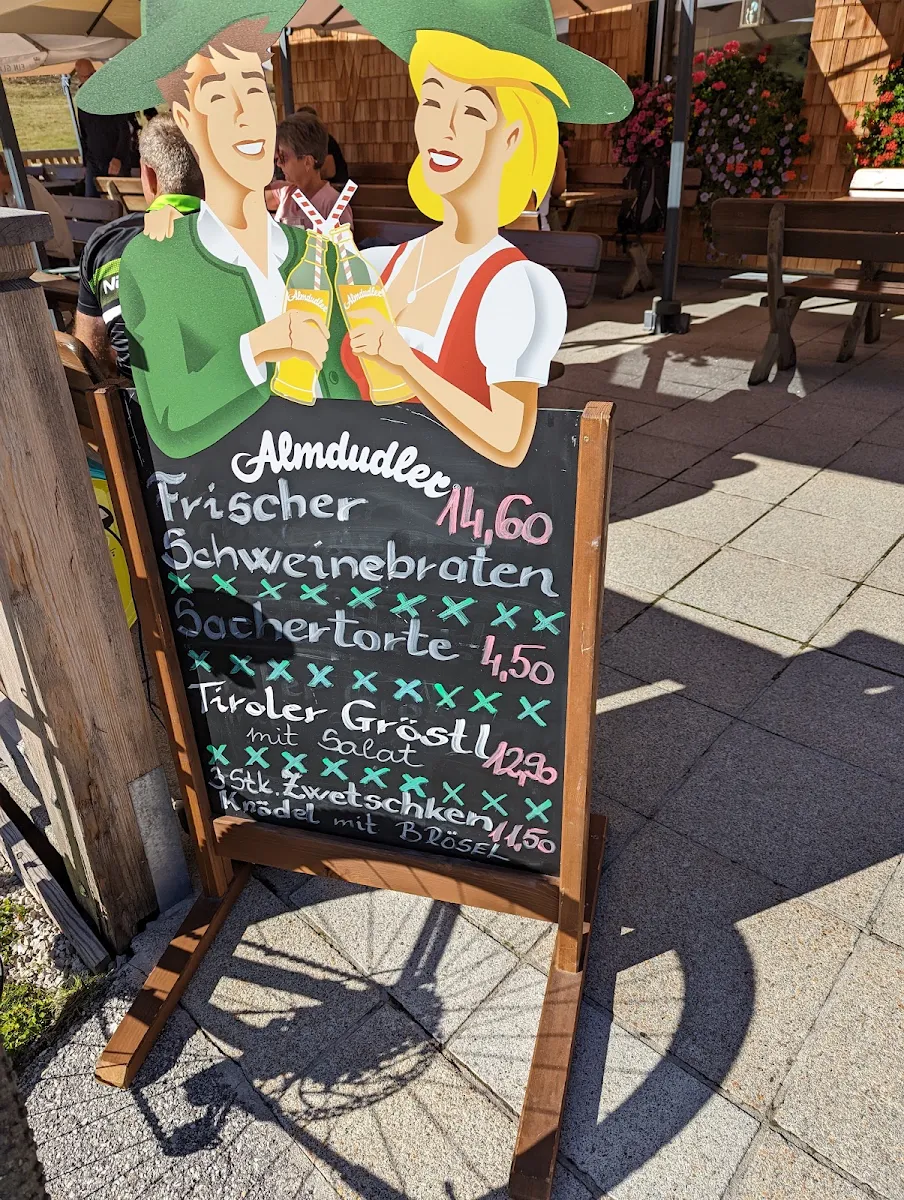 Almdudler
Almdudler
Almdudler
Frischer 14,60
Schweinebraten
Sachertorte 4,50
Tiroler Gröstl
mit Salat 12,90
3 Stk. Zwetschken
Knödel mit BRÖSEL 11,50